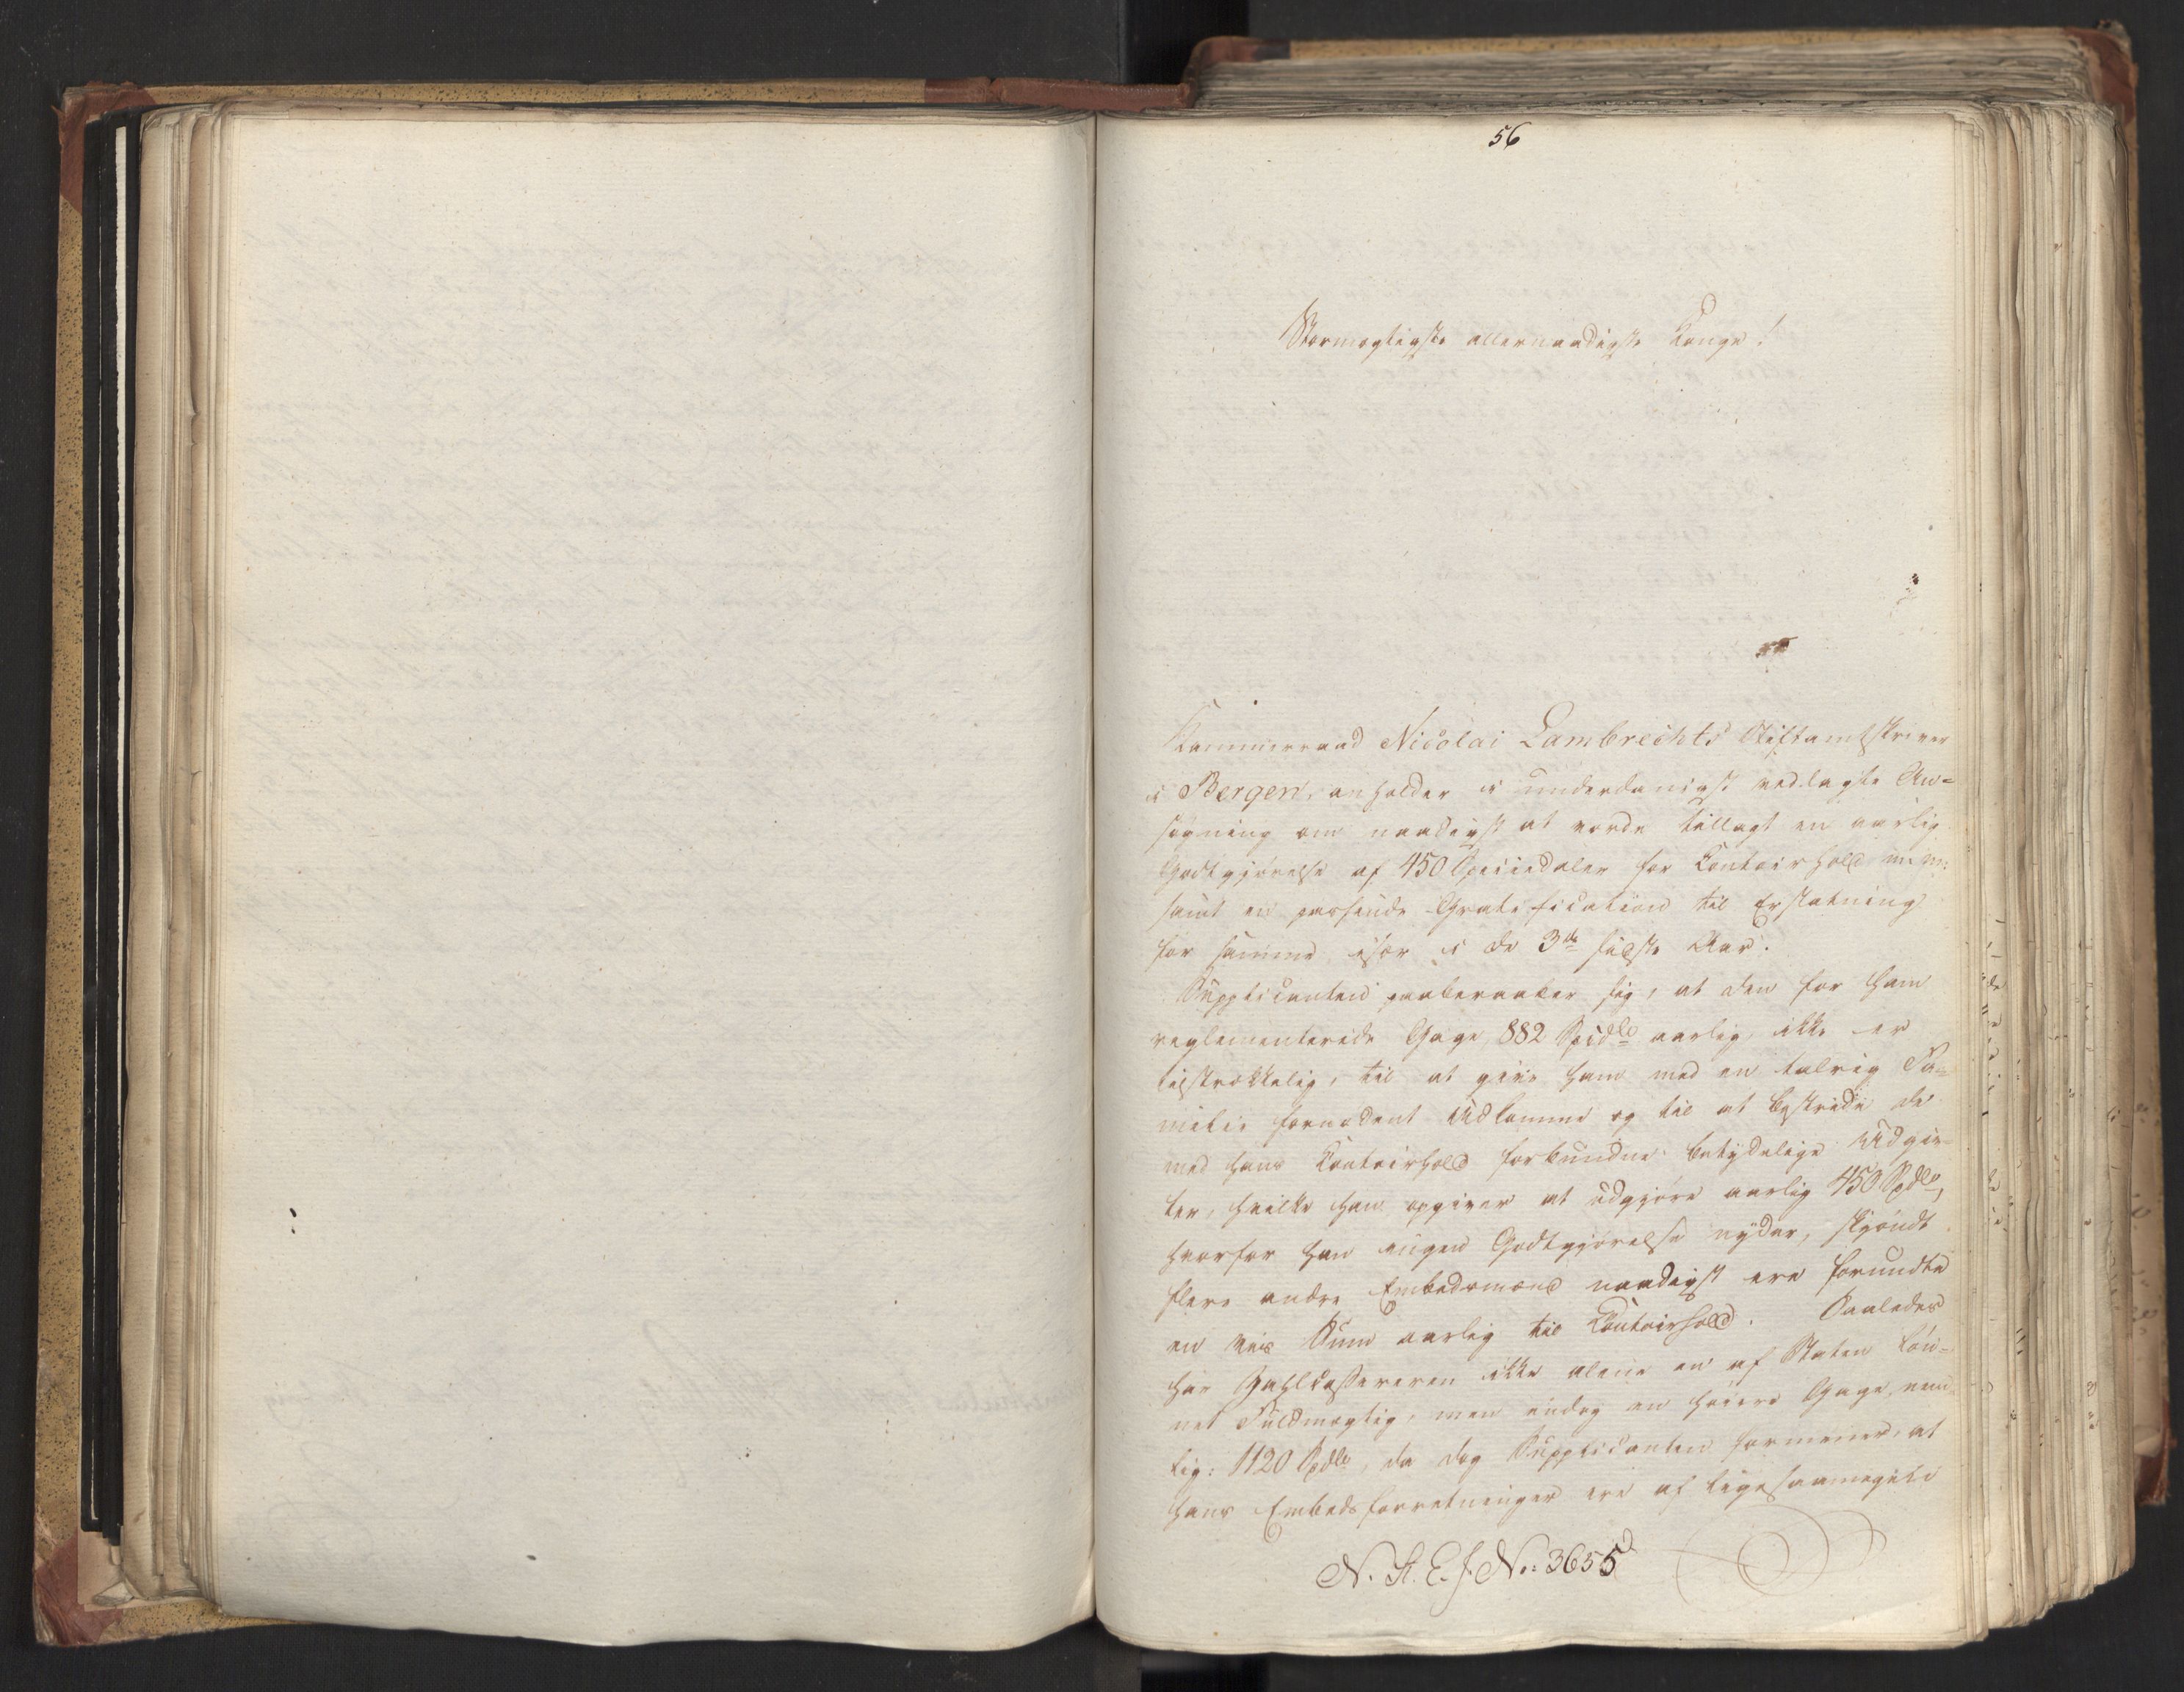 56
Stormægtigste allernaadigste Konge!
Kammerraad Nicolai Lambrechts Stiftamtskriver
i Bergen, anholder i underdanigst vedlagte An=
søgning om naadigst at vorde tillagt en aarlig
Godtgjørelse af 450 Speciedaler for Contoirhold m: m:
samt en passende Gratification til Erstatning
for samme især i de 3de sidste Aar.
Supplicanten paaberaaber sig, at den for ham
reglementerede Gage, 882 Spcdlr aarlig ikke er
tilstrækkelig, til at give ham med en talrig Fa=
milie fornødent Udkomme og til at bestride de
med hans Contoirhold forbundne betydelige Udgiv=
ter, hvilke han opgiver at udgjøre aarlig 450 Spdlr,
hvorfor han ingen Godtgjørelse nyder, skjøndt
flere andre Embedsmænd naadigst ere forundte
en vis Sum aarlig til Contoirhold. Saaledes
har Zahlcassereren ikke alene en af Staten løn=
net Fuldmægtig, men endog en høiere Gage, nem
lig: 1120 Spdlr, da dog Supplicanten formener, at
hans Embedsforretninger ere af ligesaameget
N. St. E. J. No: 3655